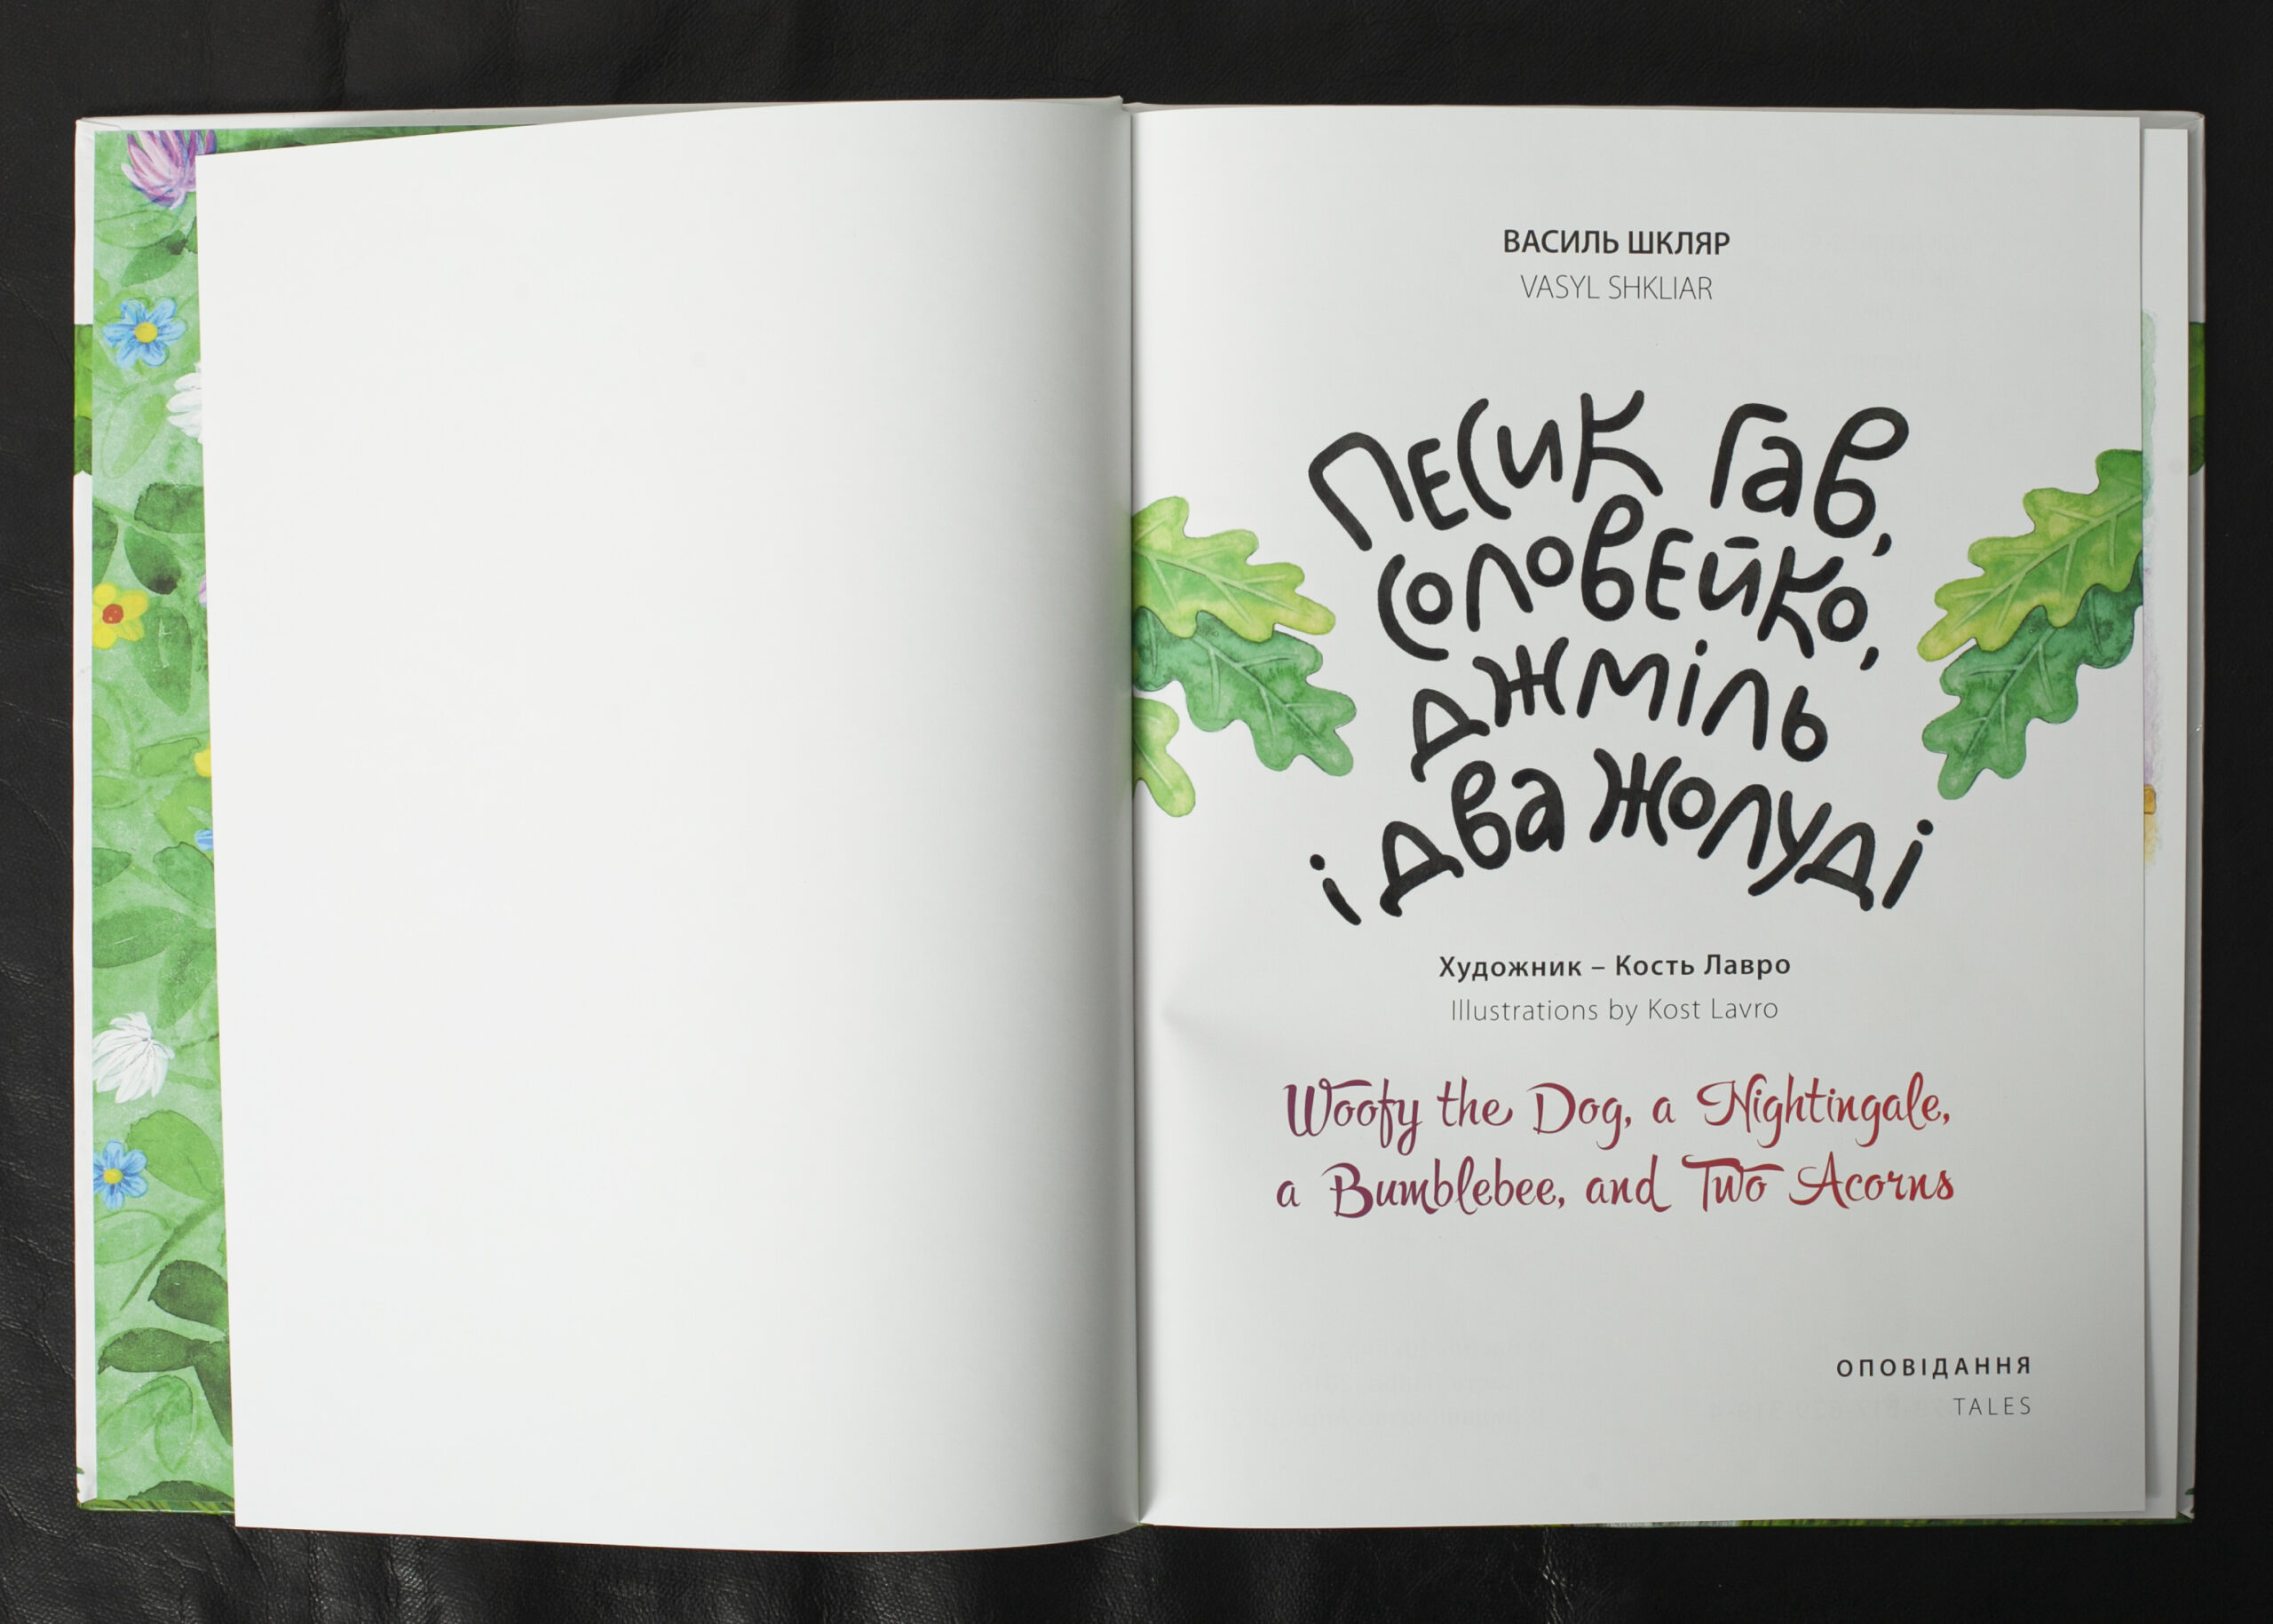 ВАСИЛЬ ШКЛЯР
VASYL SHKLIAR
Песик Гав,
Соловейко,
Джміль
і два жолуді
Художник – Кость Лавро
Illustrations by Kost Lavro
Woofy the Dog, a Nightingale,
a Bumblebee, and Two Acorns
ОПОВІДАННЯ
TALES